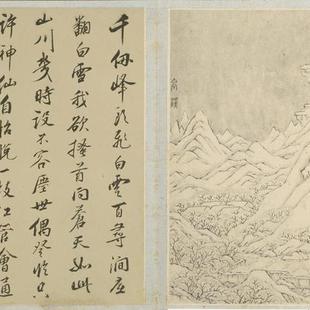 千仞峰頭飛白雲百尋澗底
翻白雪我欲搔首問蒼天如此
山川幾時設不容塵世偶登臨只
許神仙自怡悅一枝江管會通